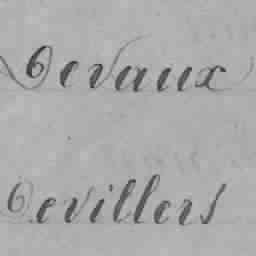 Devaux
Devillers